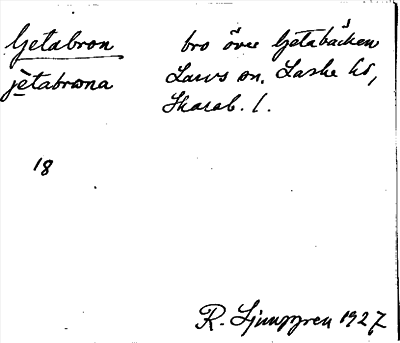 Getabron bro över Getabäcken
jètabrona Larvs sn. Laske hd,
Skarab. l.
18
R. Ljunggren 1927